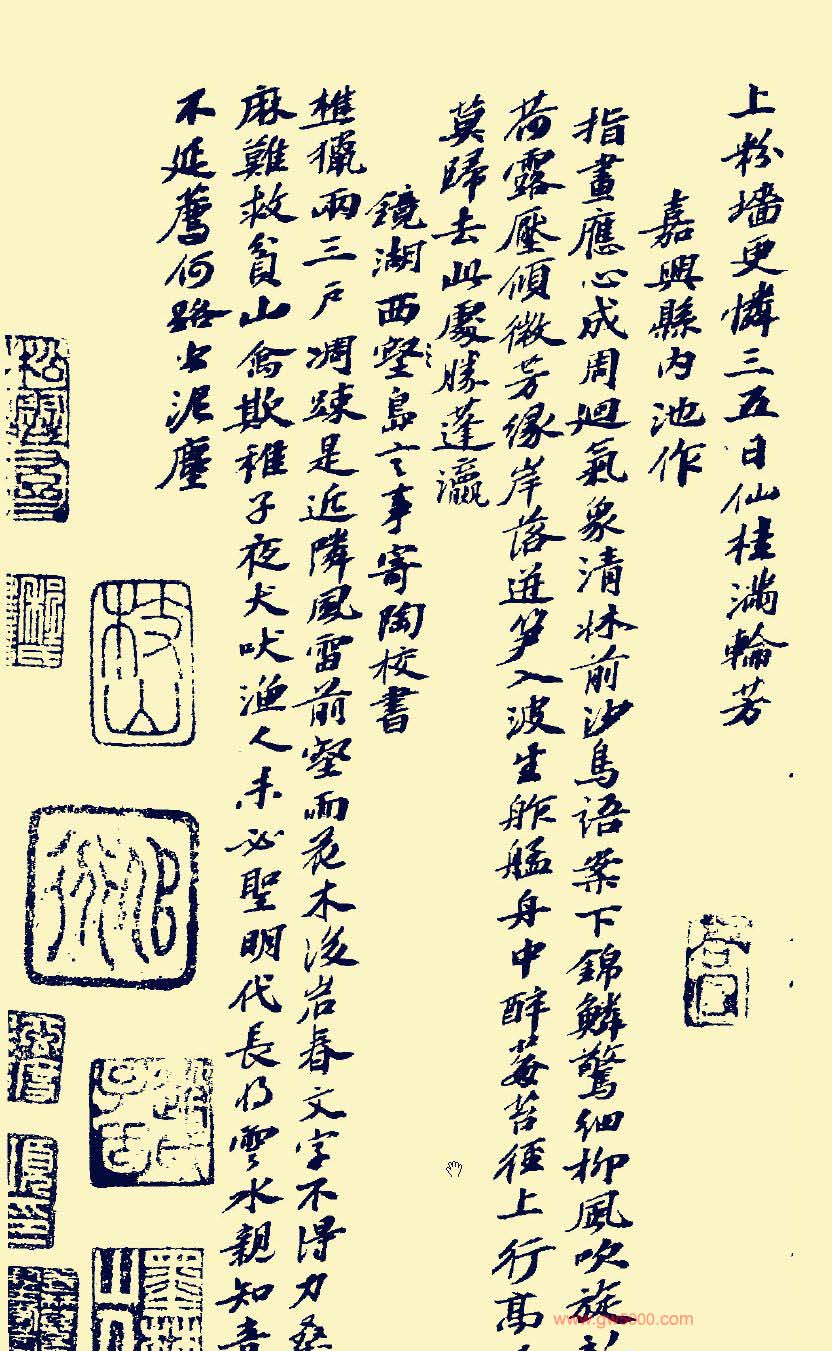 上粉墙更憐三五日仙桂滿輪芳
嘉興縣内池作
指畫應心成周廻氣象清牀前沙鳥語案下錦鱗驚細柳風吹旋
荷露壓傾微芳緣岸落迸笋入波生舴艋舟中醉莓苔徑上行高
莫歸去此處勝蓬瀛
鏡湖西壑島言事寄陶校書
樵獵兩三户凋踈是近隣風雷前壑雨花木後岩春文字不得力桑
麻難救貧山禽欺稚子夜犬吠漁人未必聖明代長將雲水親知音
不延薦何路出泥塵
枝山
趙氏子昂
www.gw5000.com